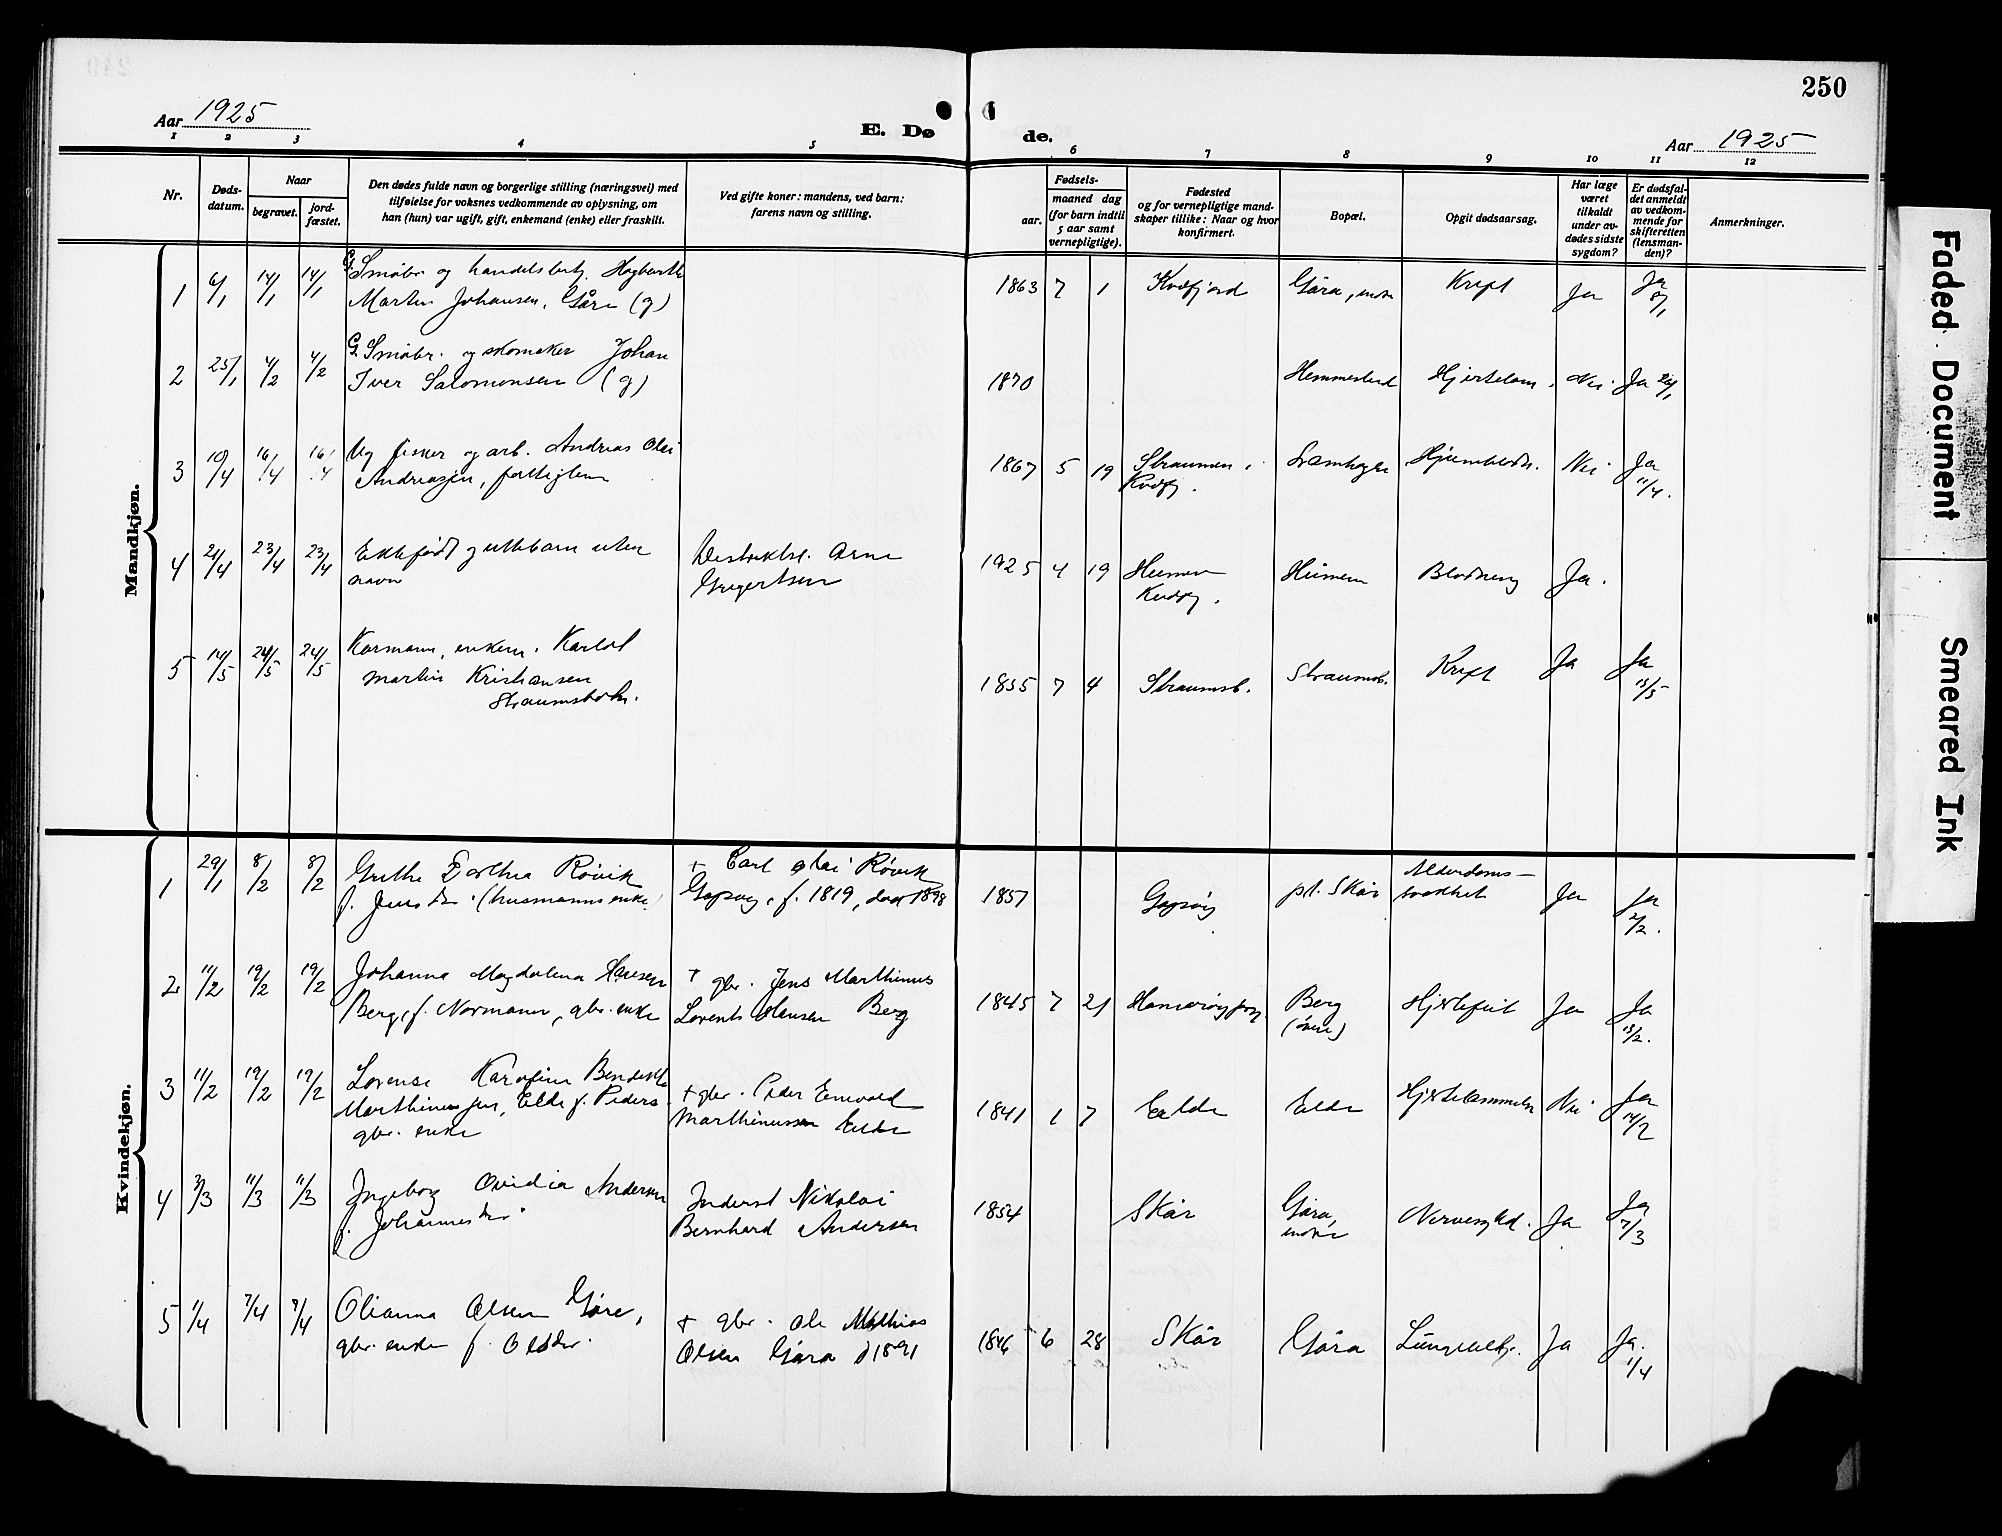 250
Aar 1925
E. Døde.
Aar 1925
1 2 3 4 5 6 7 8 9 10 11 12
Nr.
Døds-
datum.
Naar
begravet.
jord-
fæstet.
Den dødes fulde navn og borgerlige stilling (næringsvei) med
tilføielse for voksnes vedkommende av oplysning, om
han (hun) var ugift, gift, enkemand (enke) eller fraskilt.
Ved gifte koner: mandens, ved barn:
farens navn og stilling.
Fødsels-
aar.
maaned dag
(for barn indtil
5 aar samt
vernepligtige).
Fødested
og for vernepligtige mand-
skaper tillike: Naar og hvor
konfirmert.
Bopæl.
Opgit dødsaarsag.
Har læge
været
tilkaldt
under av-
dødes sidste
sygdom?
Er dødsfal-
det anmeldt
av vedkom-
mende for
skifteretten
(lensman-
den)?
Anmerkninger.
Mandkjøn.
1 6/1 14/1 14/1
G. Småbr. og handelsbetj. Hagbarth
Martin Johansen, Gåra (g)
1863 7 1 Kvæfjord Gåra, indre Kreft Ja Ja 8/1
2 25/1 4/2 4/2
G. Småbr. og skomaker Johan
Iver Salomonsen (g)
1870 Hemmestad Nei Ja
3 10/4 16/4 16/4
Ug fisker og arb. Andreas Olai
Andreasen, fattiglem
1867 5 19 Straumen i
Kvæfj.
Nei Ja 11/4.
4 21/4 23/4 23/4
Ektefødt guttebarn uten
navn
Arne
1925 4 19
Kvæfj. Ja.
5 14/5 24/5 24/5
Kårmann, enkem. Karlot
Martin Kristiansen
Straumsbotn.
1835 7 4 Straumsb. Straumsb. Kreft Ja Ja 15/5
Kvindekjøn.
1 29/1 8/2 8/2
Grethe Dorthea Røvik
f. Jensdtr. (husmanns enke)
+ Carl Olai Røvik
f. 1819, død 1898
1857 p.t. Skår Alderdoms-
svakhet Ja Ja 2/2.
2 11/2 19/2 19/2
Johanna Magdalena Hansen
Berg, f. Normann, gbr. enke
+ gbr. Jens Marthinus
Lorents Hansen Berg
1845 7 21 Berg
(øvre) Ja Ja 13/2.
3 11/2 19/2 19/2
Lorense
Marthinussen, Elde f. Peders.
gbr. enke
+ gbr. Peder Enevold
Marthinussen Elde
1841 1 7 Elde Elde Nei Ja 14/2
4 3/3 11/3 11/3
Ingeborg Ovidia Andersen
f. Johannesdtr.
Inderst Nikolai
Bernhard Andersen
1854 Skår Gåra,
indre Nervesykd. Ja Ja 7/3
5 1/4 7/4 7/4
Olianna Olsen Gåra,
gbr. enke f. Olsdtr.
+ gbr. Ole Mathias
Olsen Gåra d 1891
1846 6 28 Skår Gåra Ja Ja. 1/4
Faded Document
Smeared Ink